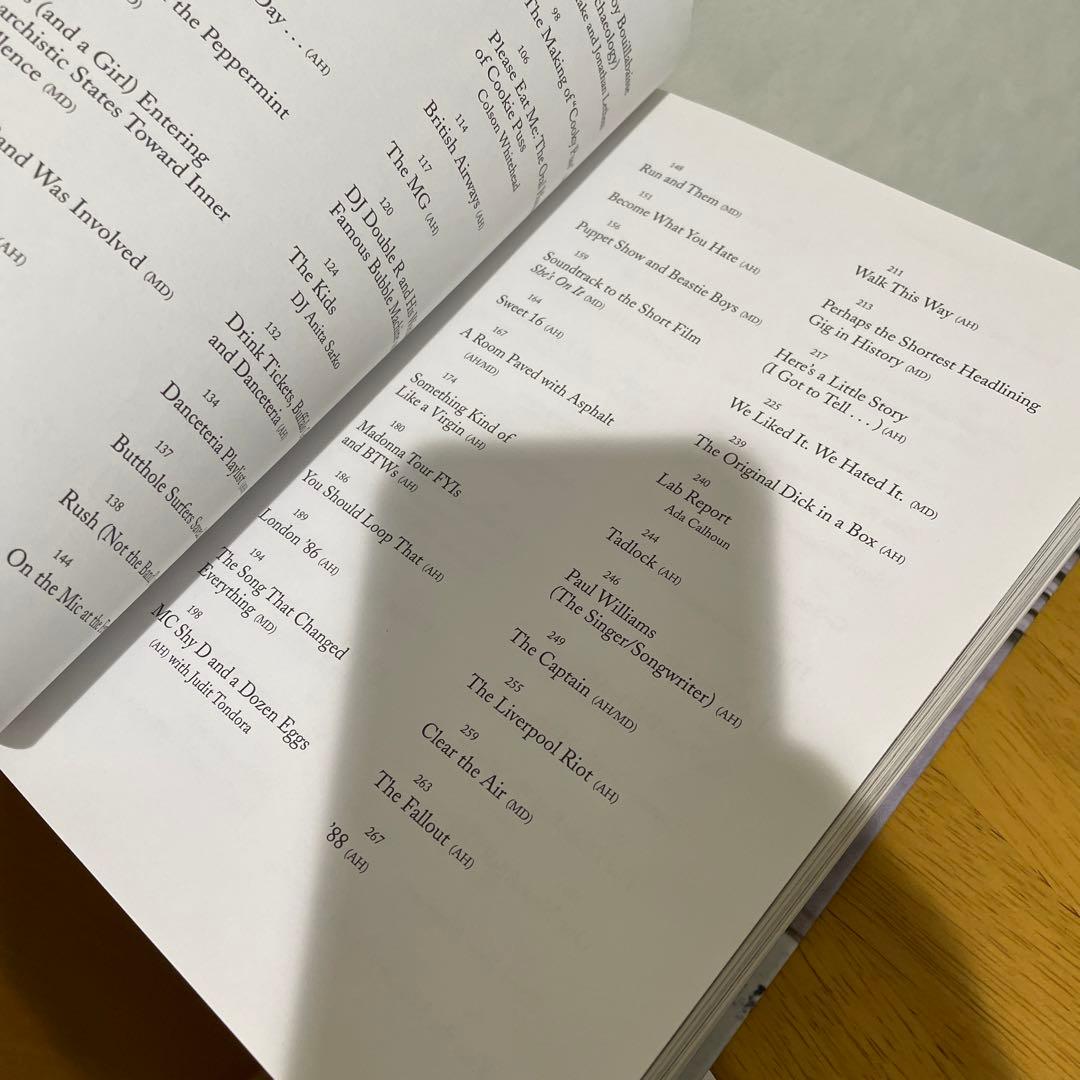 Day . . . (AH)
the Peppermint
(and a Girl) Entering
States Toward Inner
(MD)
and Was Involved (MD)
(AH)
Bouillabaisse
and Jonathan Lethem
98
The Making of "Cooky Puss"
106
Please Eat Me: The Oral
of Cookie Puss
Colson Whitehead
114
British Airways (AH)
117
The MG (AH)
120
DJ Double R and His
Famous Bubble Machine
124
The Kids
DJ Anita Sarko
132
Drink Tickets,
and Danceteria (AH)
134
Danceteria Playlist
137
Butthole Surfers
138
Rush (Not the Band)
144
On the Mic at the
148
Run and Them (MD)
151
Become What You Hate (AH)
156
Puppet Show and Beastie Boys (MD)
159
Soundtrack to the Short Film
She's On It (MD)
164
Sweet 16 (AH)
167
A Room Paved with Asphalt
(AH/MD)
174
Something Kind of
Like a Virgin (AH)
180
Madonna Tour FYIs
and BTWs (AH)
186
You Should Loop That (AH)
189
London '86 (AH)
194
The Song That Changed
Everything (MD)
198
MC Shy D and a Dozen Eggs
(AH) with Judit Tondora
211
Walk This Way (AH)
213
Perhaps the Shortest Headlining
Gig in History (MD)
217
Here's a Little Story
(I Got to Tell . . . .) (AH)
225
We Liked It. We Hated It. (MD)
239
The Original Dick in a Box (AH)
240
Lab Report
Ada Calhoun
244
Tadlock (AH)
246
Paul Williams
(The Singer/Songwriter) (AH)
249
The Captain (AH/MD)
255
The Liverpool Riot (AH)
259
Clear the Air (MD)
263
The Fallout (AH)
267
'88 (AH)